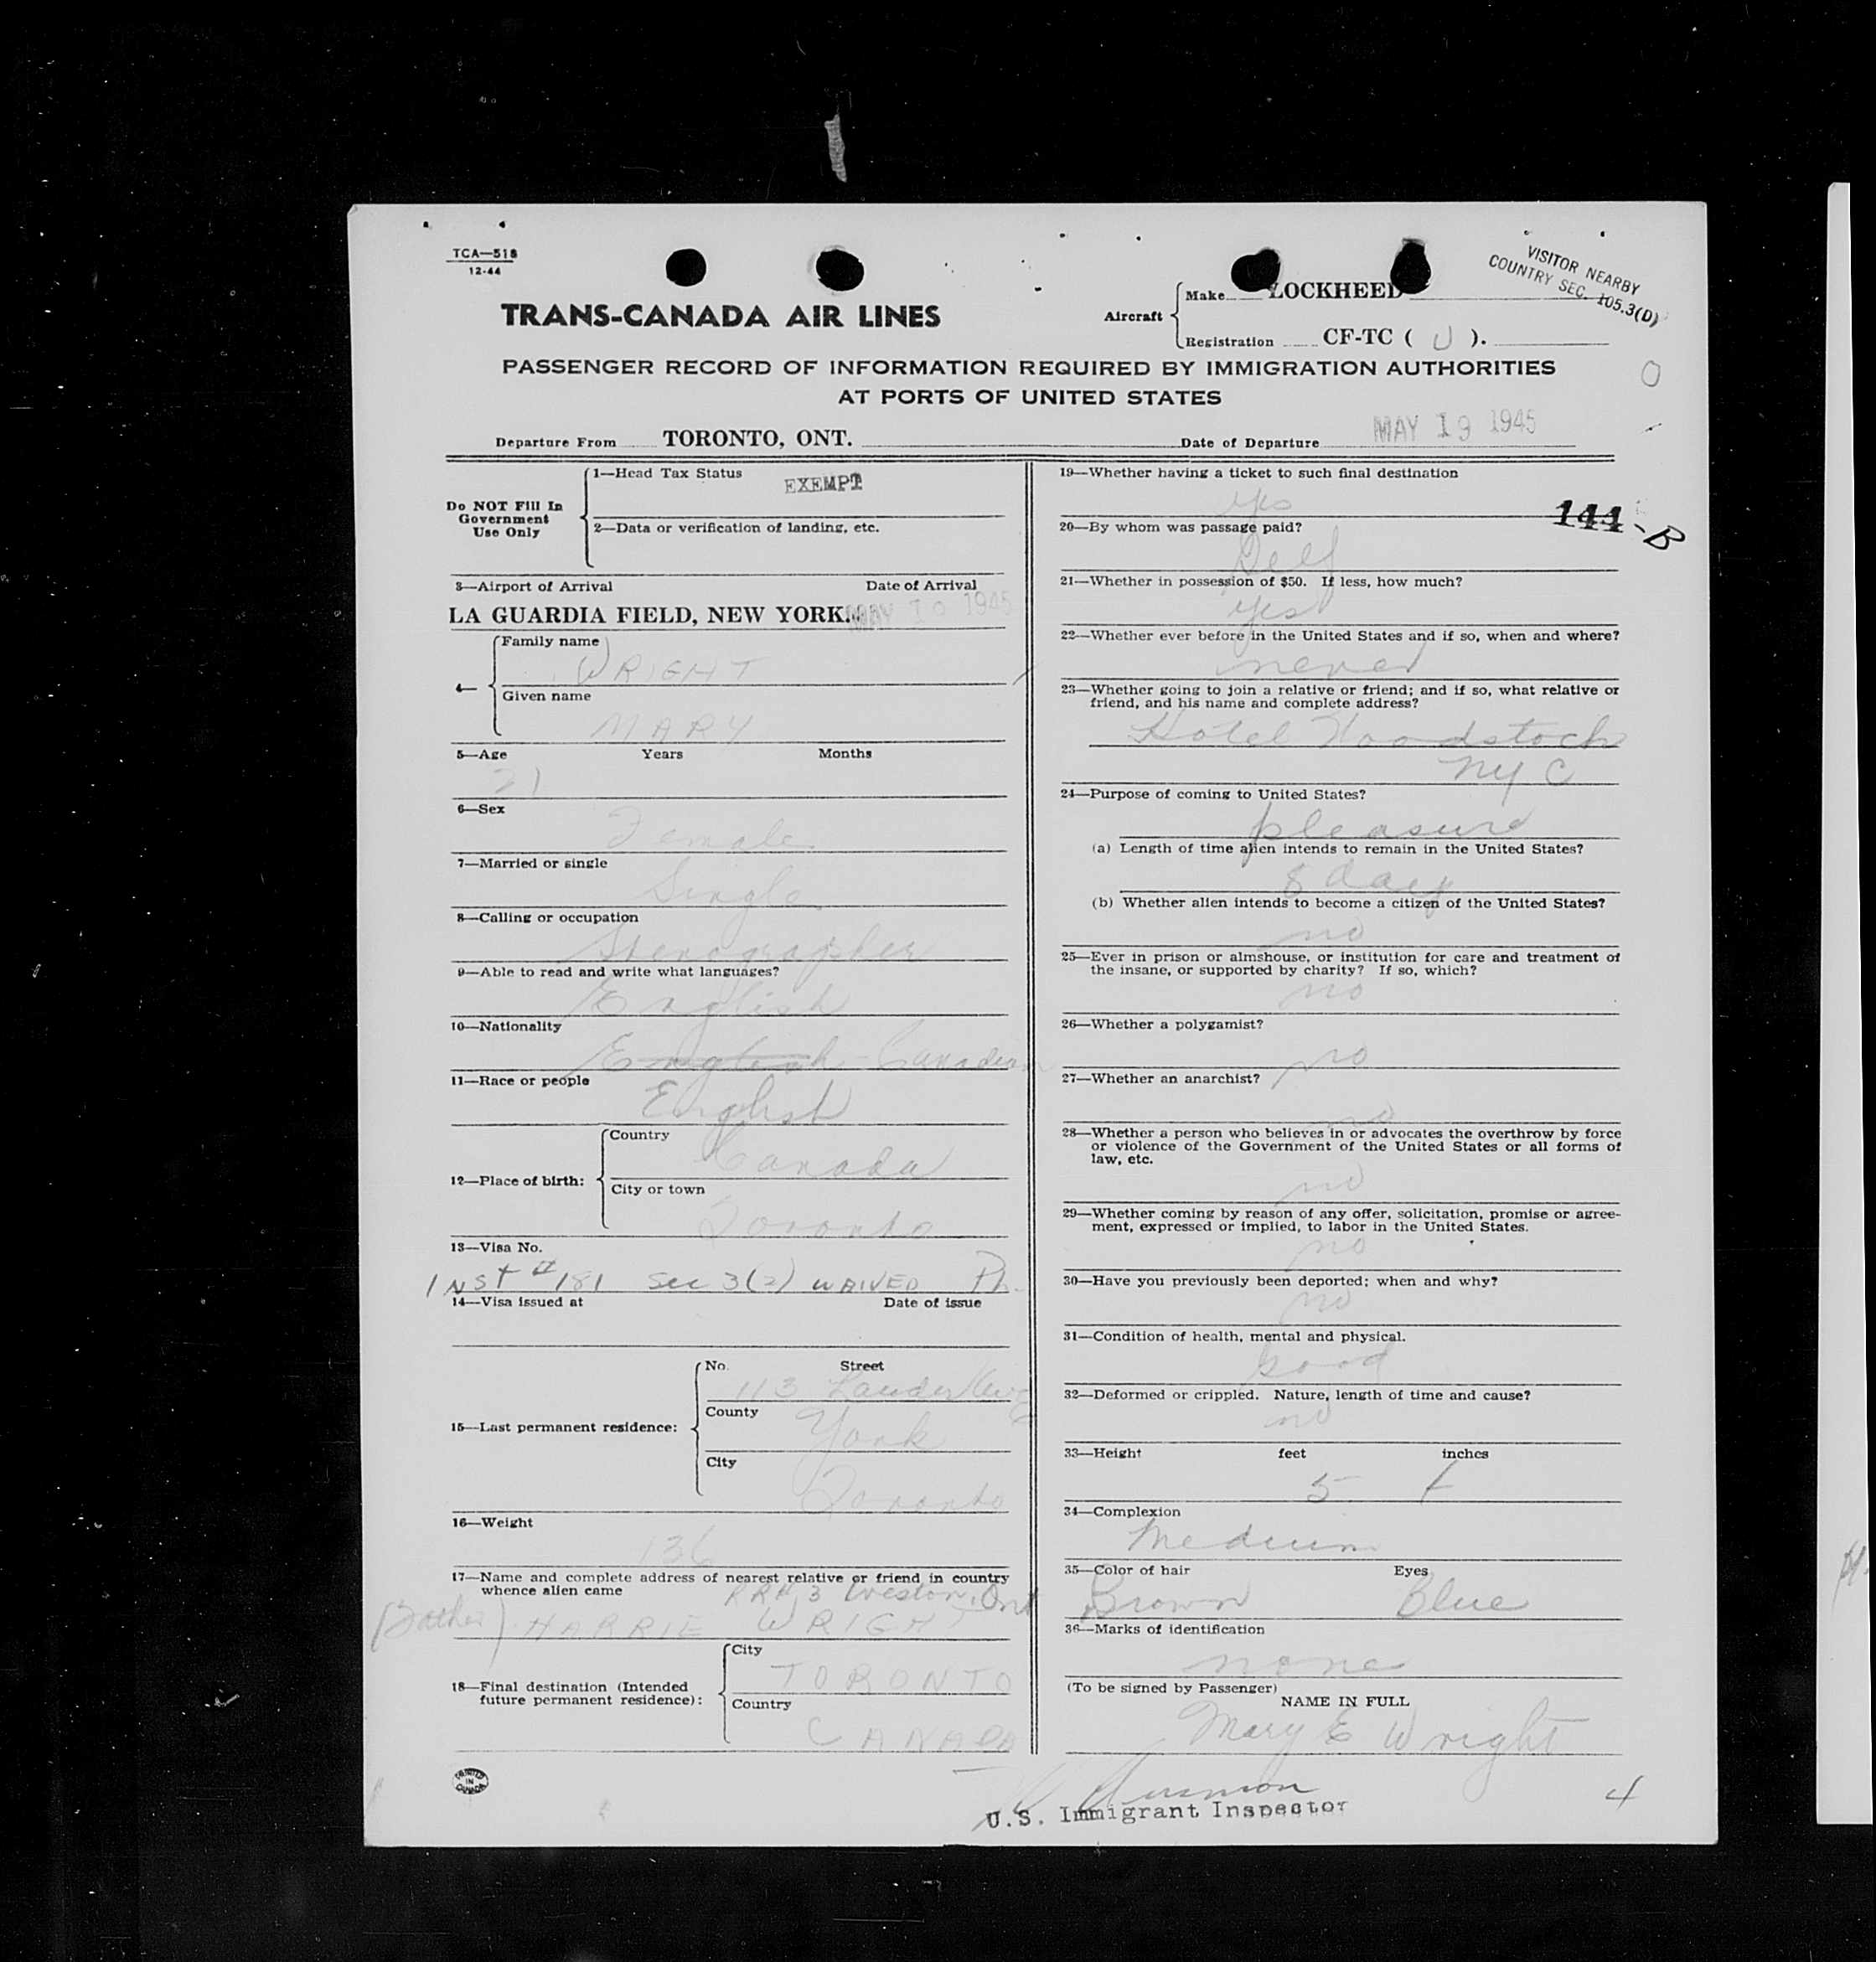 TCA—518
12-44
TRANS-CANADA AIR LINES
Aircraft
Make LOCKHEED
Registration CF-TC ( U ).
VISITOR NEARBY
COUNTRY SEC. 105.3(D)
PASSENGER RECORD OF INFORMATION REQUIRED BY IMMIGRATION AUTHORITIES
AT PORTS OF UNITED STATES
Departure From TORONTO, ONT. Date of Departure MAY 19 1945
Do NOT Fill In
Government
Use Only
1—Head Tax Status EXEMPT
2—Data or verification of landing, etc.
3—Airport of Arrival Date of Arrival
LA GUARDIA FIELD, NEW YORK. MAY 1945
4—
Family name
WRIGHT
Given name
MARY
5—Age Years Months
21
6—Sex
Female
7—Married or single
Single
8—Calling or occupation
Stenographer
9—Able to read and write what languages?
English
10—Nationality
English - Canadian
11—Race or people
English
12—Place of birth:
Country
Canada
City or town
Toronto
13—Visa No.
INST # 181 Sec 3(2) WAIVED
14—Visa issued at Date of issue
15—Last permanent residence:
No. Street
113 Lauder Ave
County
York
City
Toronto
16—Weight
136
17—Name and complete address of nearest relative or friend in country
whence alien came RR# 3 Weston, Ont
(Father) HARRIE WRIGHT
18—Final destination (Intended
future permanent residence):
City
TORONTO
Country
CANADA
PRINTED
IN
CANADA
19—Whether having a ticket to such final destination
yes
144-B
20—By whom was passage paid?
Self
21—Whether in possession of $50. If less, how much?
yes
22—Whether ever before in the United States and if so, when and where?
never
23—Whether going to join a relative or friend; and if so, what relative or
friend, and his name and complete address?
Hotel Woodstock
NYC
24—Purpose of coming to United States?
pleasure
(a) Length of time alien intends to remain in the United States?
8 days
(b) Whether alien intends to become a citizen of the United States?
no
25—Ever in prison or almshouse, or institution for care and treatment of
the insane, or supported by charity? If so, which?
no
26—Whether a polygamist?
no
27—Whether an anarchist?
no
28—Whether a person who believes in or advocates the overthrow by force
or violence of the Government of the United States or all forms of
law, etc.
no
29—Whether coming by reason of any offer, solicitation, promise or agree-
ment, expressed or implied, to labor in the United States.
no
30—Have you previously been deported; when and why?
no
31—Condition of health, mental and physical.
good
32—Deformed or crippled. Nature, length of time and cause?
no
33—Height feet inches
5
34—Complexion
Medium
35—Color of hair Eyes
Brown Blue
36—Marks of identification
none
(To be signed by Passenger)
NAME IN FULL
Mary E Wright
U.S. Immigrant Inspector
4